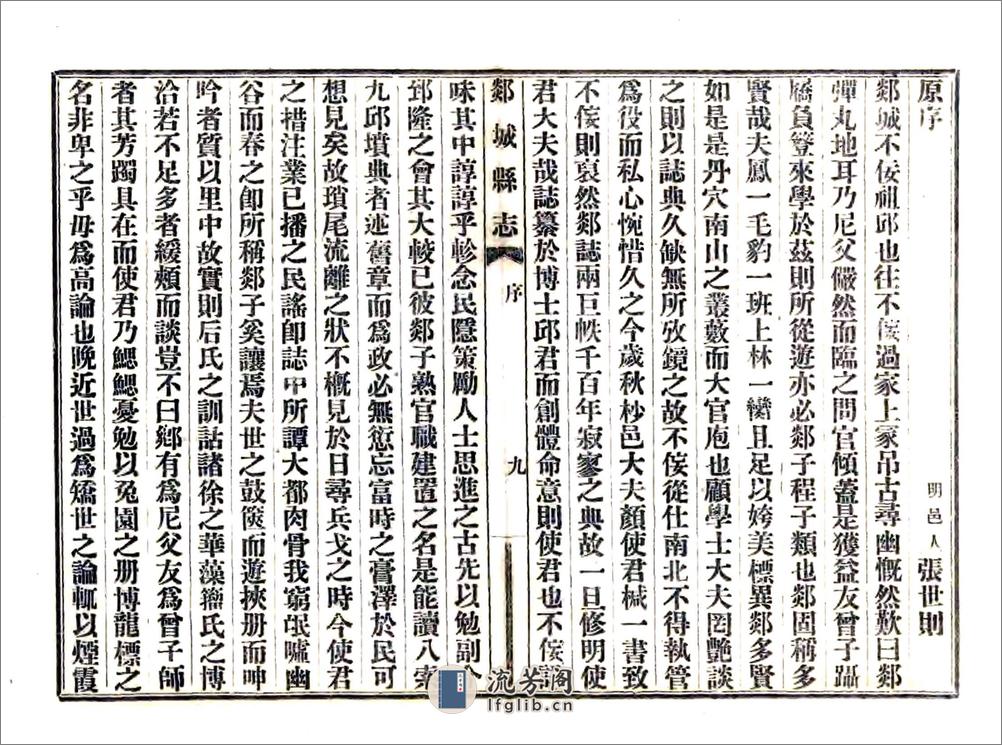 原序
明邑人張世則
郯城不佞祖邱也往不佞過家上冢吊古尋幽慨然歎曰郯
彈丸地耳乃尼父儼然而臨之問官傾蓋是獲益友曾子躡
屩負簦來學於茲則所從遊亦必郯子程子類也郯固稱多
賢哉夫鳳一毛豹一班上林一臠且足以姱美標異郯多賢
如是是丹穴南山之叢藪而大官庖也顧學士大夫罔艷談
之則以誌典久缺無所攷鏡之故不佞從仕南北不得執管
爲役而私心惋惜久之今歲秋杪邑大夫顏使君械一書致
不佞則裒然郯誌兩巨帙千百年寂寥之典故一旦修明使
君大夫哉誌纂於博士邱君而創體命意則使君也不佞詔
郯城縣志
序
九
味其中諄諄乎軫念民隱策勵人士思進之古先以勉副今
郅隆之會其大較已彼郯子熟官職建置之名是能讀八索
九邱墳典者述舊章而爲政必無愆忘富時之膏澤於民可
想見矣故瑣尾流離之狀不槪見於日尋兵戈之時今使君
之措注業已播之民謠卽誌中所譚大都肉骨我窮氓噓幽
谷而春之卽所稱郯子奚讓焉夫世之鼓篋而遊挾册而呻
吟者質以里中故實則后氏之訓詁諸徐之華藻獵氏之博
洽若不足多者緩頰而談豈不曰鄉有爲尼父友爲曾子師
者其芳躅具在而使君乃鰓鰓憂勉以兔園之册博龍標之
名非卑之乎毋爲高論也晩近世過爲矯世之論輒以煙霞
流芳閣
lfglib.cn